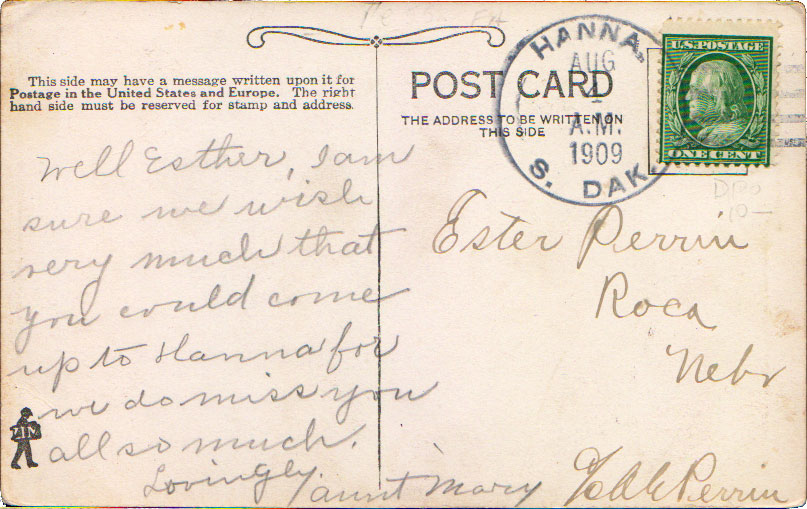 This side may have a message written upon it for
Postage in the United States and Europe. The right
hand side must be reserved for stamp and address.
POST CARD
THE ADDRESS TO BE WRITTEN ON
THIS SIDE
HANNA.
AUG
A.M.
1909
S. DAK
U.S. POSTAGE
ONE CENT
DPO
10-
Well Esther, I am
sure we wish
very much that
you could come
up to Hanna for
we do miss you
all so much.
Lovingly
aunt Mary
Ester Perrin
Roca
Nebr
Perrin